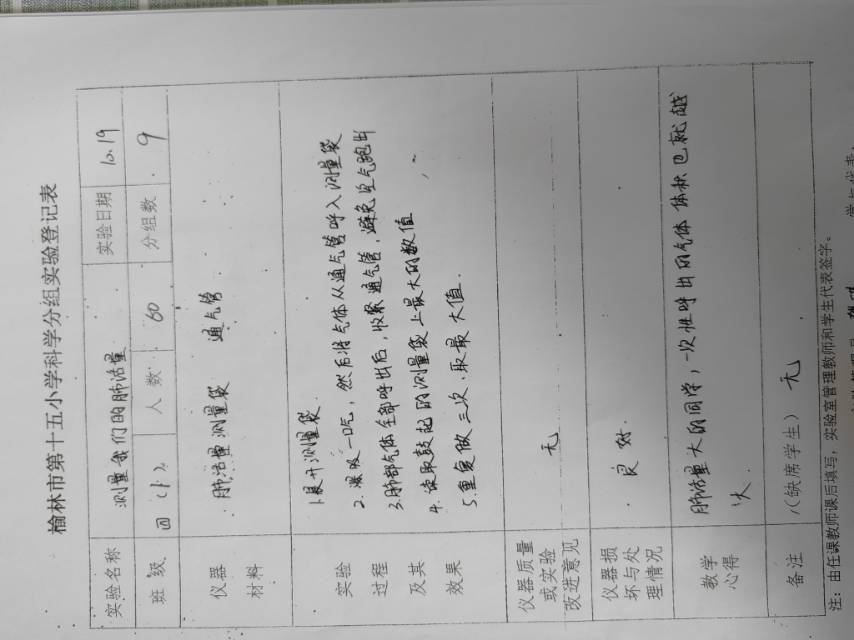 榆林市第十五小学科学分组实验登记表
实验名称 测量我们的肺活量 实验日期 10.19
班级 四(1) 人数 60 分组数 9
仪器材料 肺活量测量袋 通气管
实验过程及其效果
1.展开测量袋.
2.深吸一口气,然后将气体从通气管呼入测量袋
3.肺部气体全部呼出后,收紧通气管,避免空气跑出
4.读取鼓起的测量袋上最大的数值
5.重复做三次,取最大值.
仪器质量或实验改进意见 无
仪器损坏与处理情况 良好.
教学心得 肺活量大的同学,一次性呼出的气体体积也就越
大.
备注 (缺席学生) 无
注:由任课教师课后填写,实验室管理教师和学生代表签字。